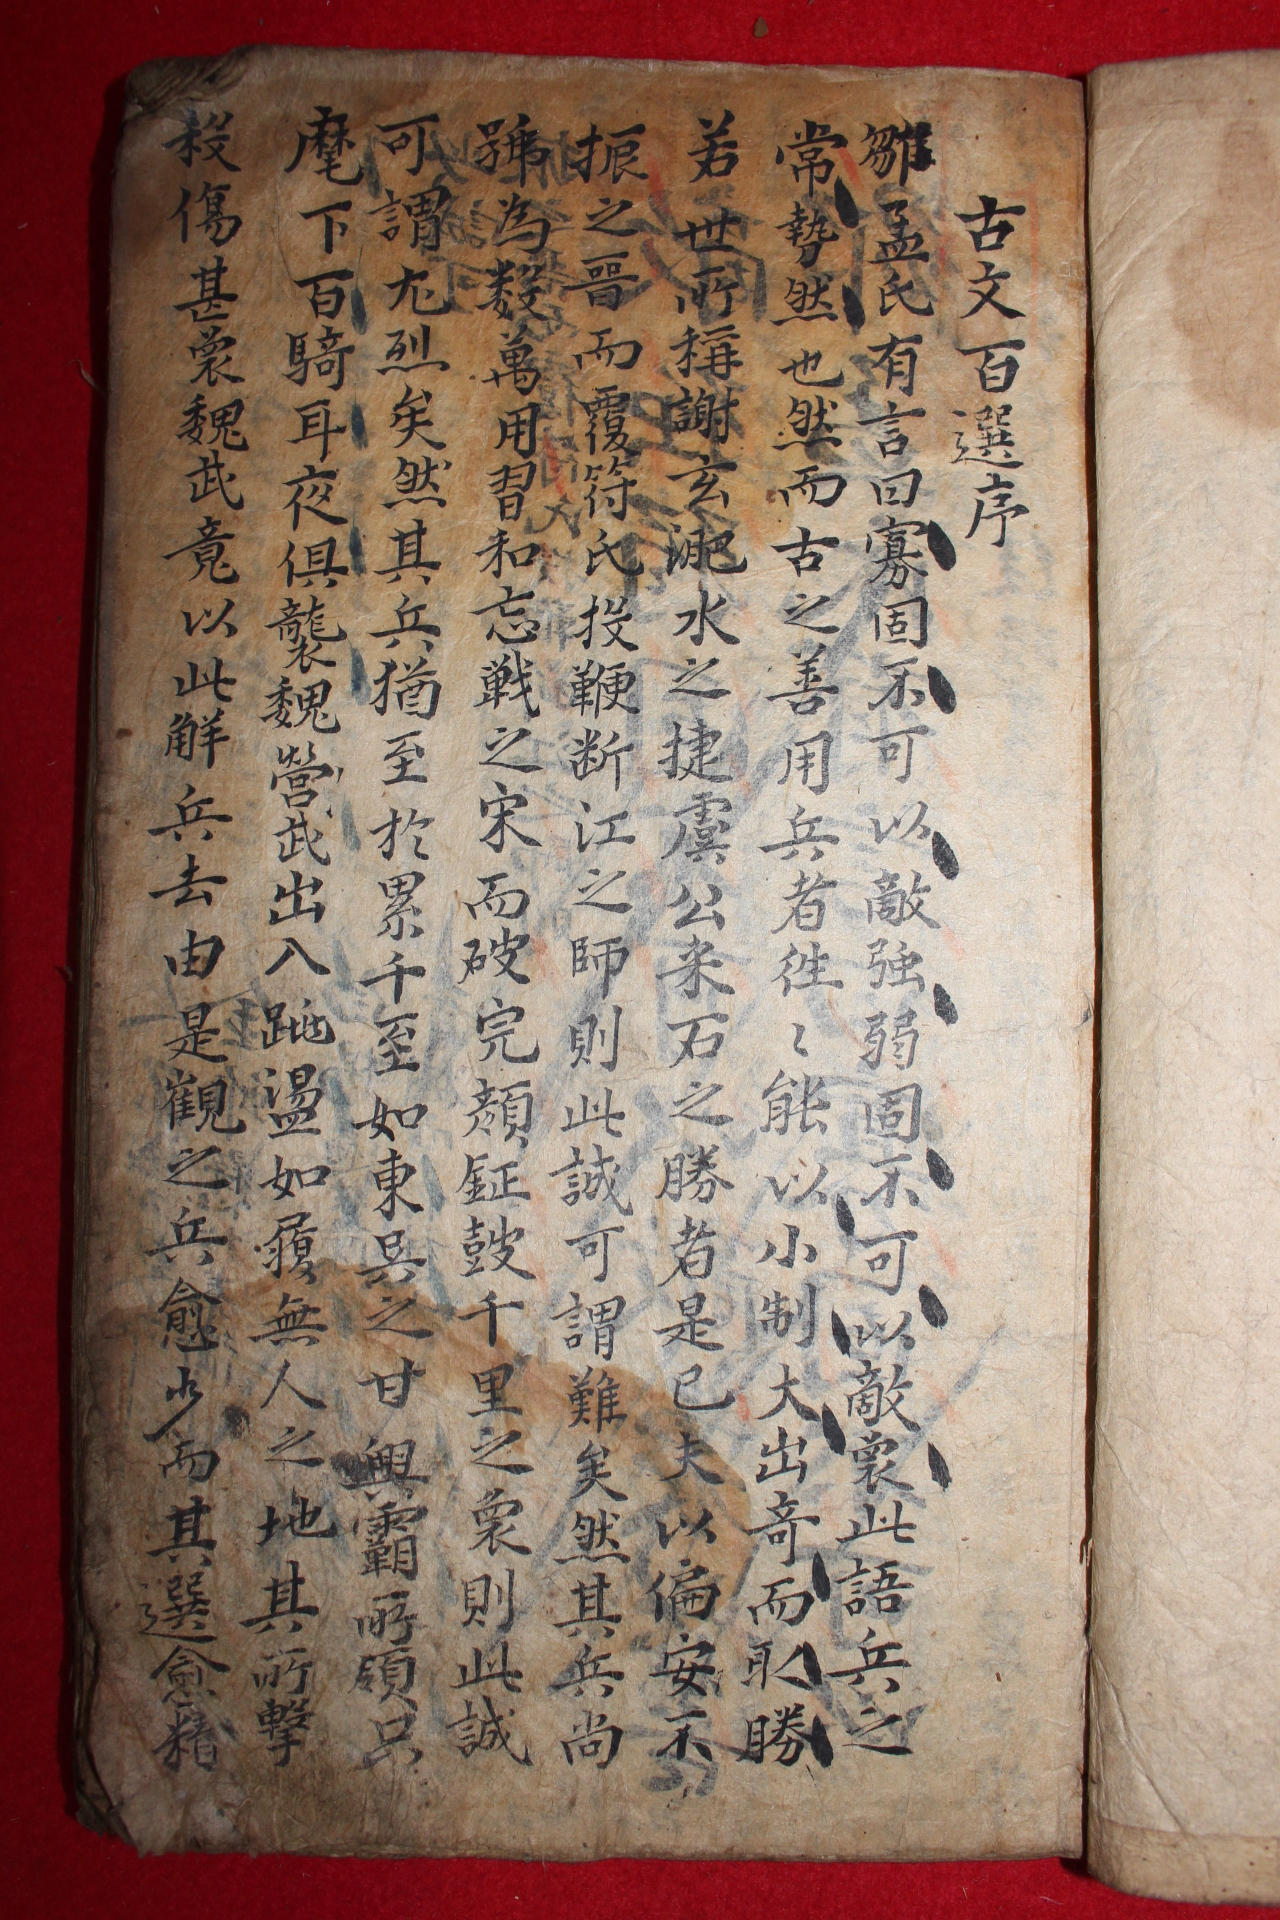 古文百選序
鄒孟氏有言曰寡固不可以敵強弱固不可以敵衆此語兵之
常勢然也然而古之善用兵者徃〻能以小制大出奇而取勝
若世所稱謝玄淝水之捷虞公采石之勝者是已夫以偏安不
振之晉而覆符氏投鞭断江之師則此誠可謂難矣然其兵尚
號為数萬用習和忘戦之宋而破完顔鉦鼓千里之衆則此誠
可謂尤烈矣然其兵猶至於累千至如東吳之甘興霸所領只
麾下百騎耳夜俱襲魏營武出入跳盪如履無人之地其所擊
殺傷甚衆魏武竟以此解兵去由是觀之兵愈少而其選愈精